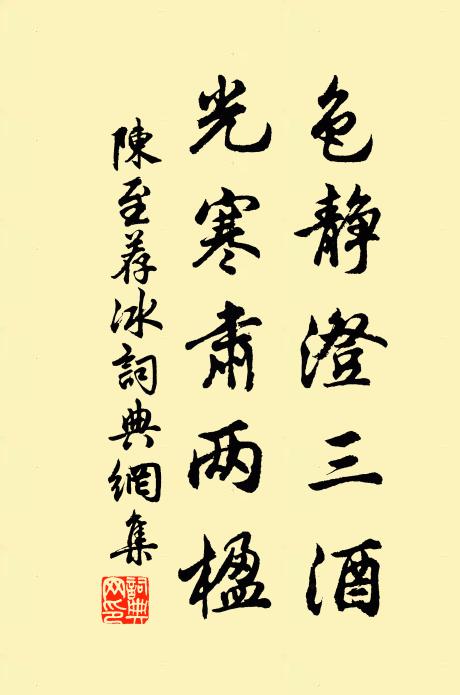 色静澄三酒
光寒肅两楹
陳至荐冰詞典網集
詞典網印